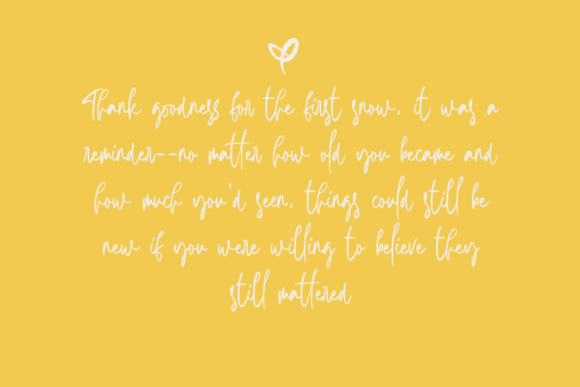 Thank goodness for the first snow, it was a
reminder--no matter how old you became and
how much you'd seen, things could still be
new if you were willing to believe they
still mattered